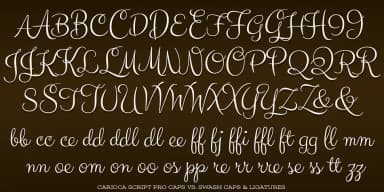 AABBCCDDEEFFGGHHII
JJKKLLMMNNOOPPQQRR
SSTTUUVVWWXXYYZZ&&
bb cc cc dd ddl dl ee ff fj ffi ffl ft gg ll mm
nn oe om on oo os pp re rr rre se ss tt zz
CARIOCA SCRIPT PRO CAPS VS. SWASH CAPS & LIGATURES